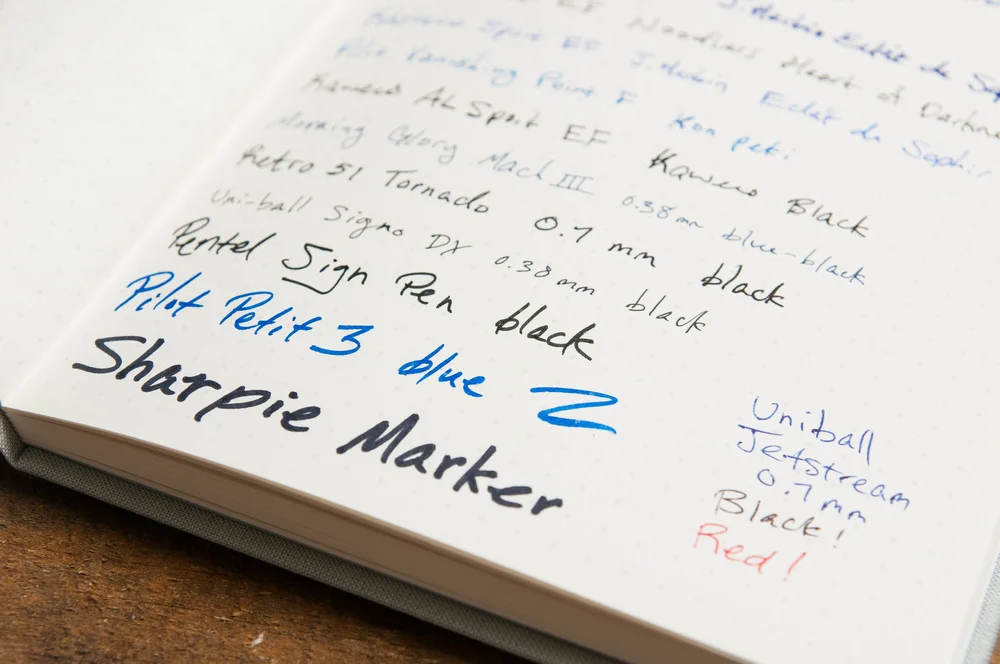 J. Herbin Eclat de
EF Noodlers Heart of
Sport EF J. Herbin Eclat de Saphir
Pilot Vanishing Point F Kon peki
Kaweco AL Sport EF Kaweco Black
Morning Glory Mach III 0.38mm blue-black
Retro 51 Tornado 0.7 mm black
Uni-ball Signo DX 0.38mm black
Pentel Sign Pen black
Pilot Petit 3 blue
Sharpie Marker
Uniball
Jetstream
0.7mm
Black!
Red!